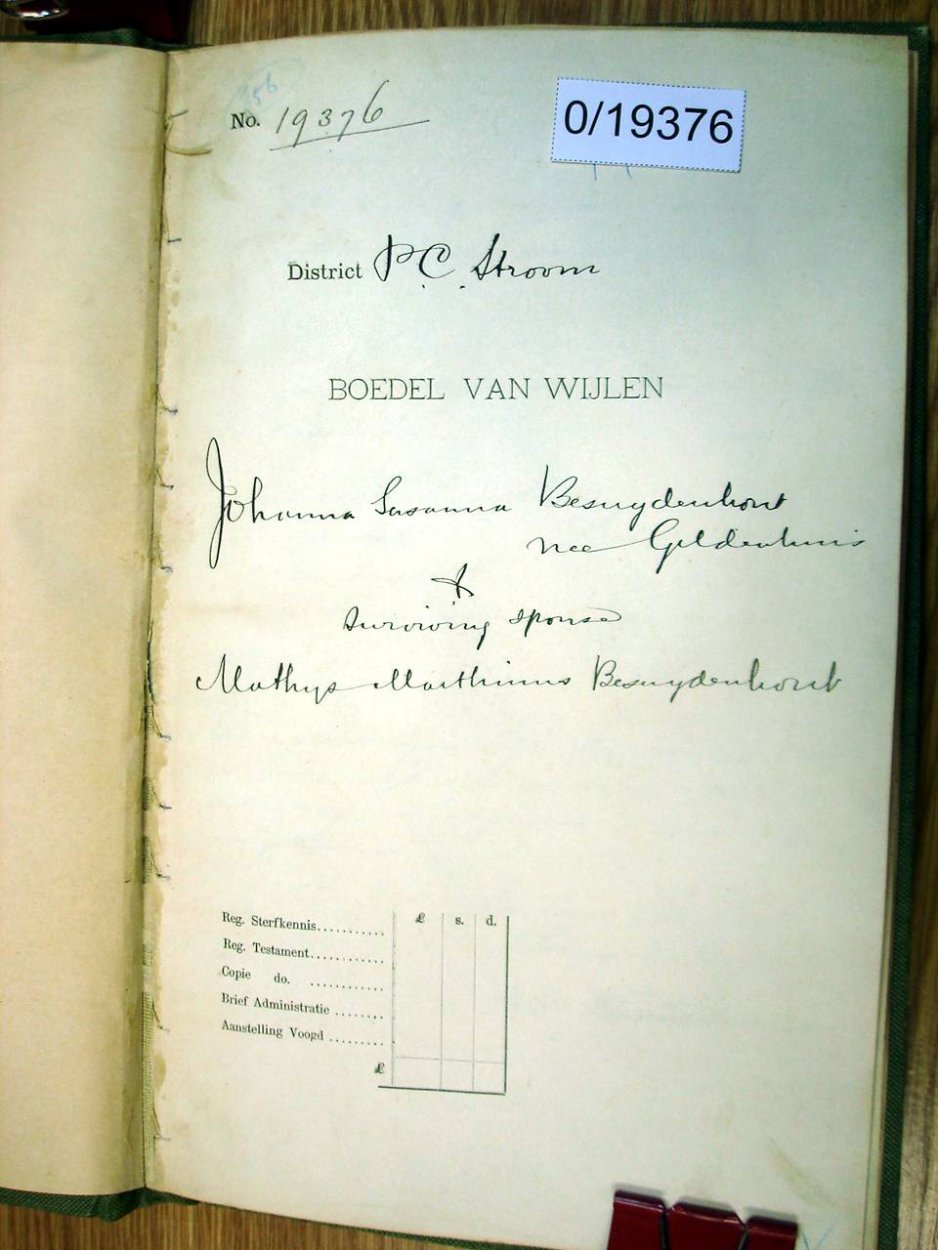 56
No. 19376
0/19376
District P.C. Stroom
BOEDEL VAN WIJLEN
Johanna Susanna Besuydenhout
nee Geldenhuis
&
surviving spouse
Mathys Marthinus Besuydenhout
£ s. d.
Reg. Sterfkennis...........
Reg. Testament............
Copie do. ............
Brief Administratie ........
Aanstelling Voogd .........
£